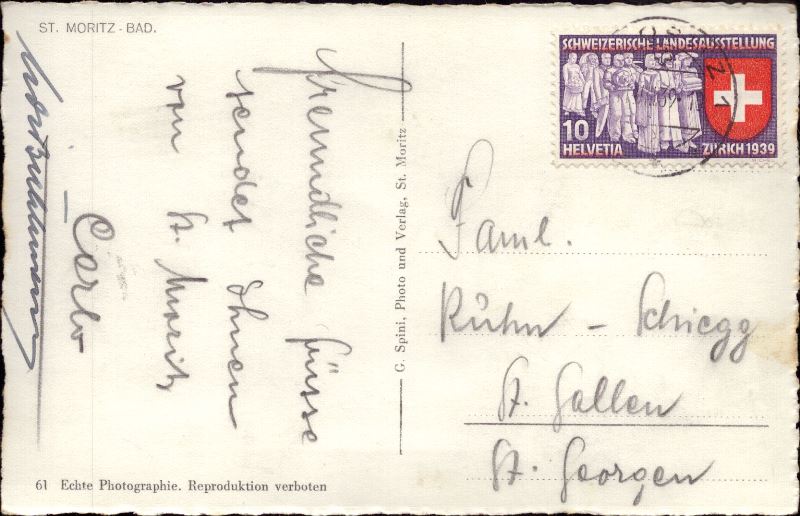 ST. MORITZ - BAD.
Freundliche Grüsse
sendet Ihnen
von St. Moritz
Carlo
61 Echte Photographie. Reproduktion verboten
G. Spini, Photo und Verlag, St. Moritz
SCHWEIZERISCHE LANDESAUSSTELLUNG
10
HELVETIA ZÜRICH 1939
Faml.
Kühn - Schiegg
St. Gallen
St. Georgen